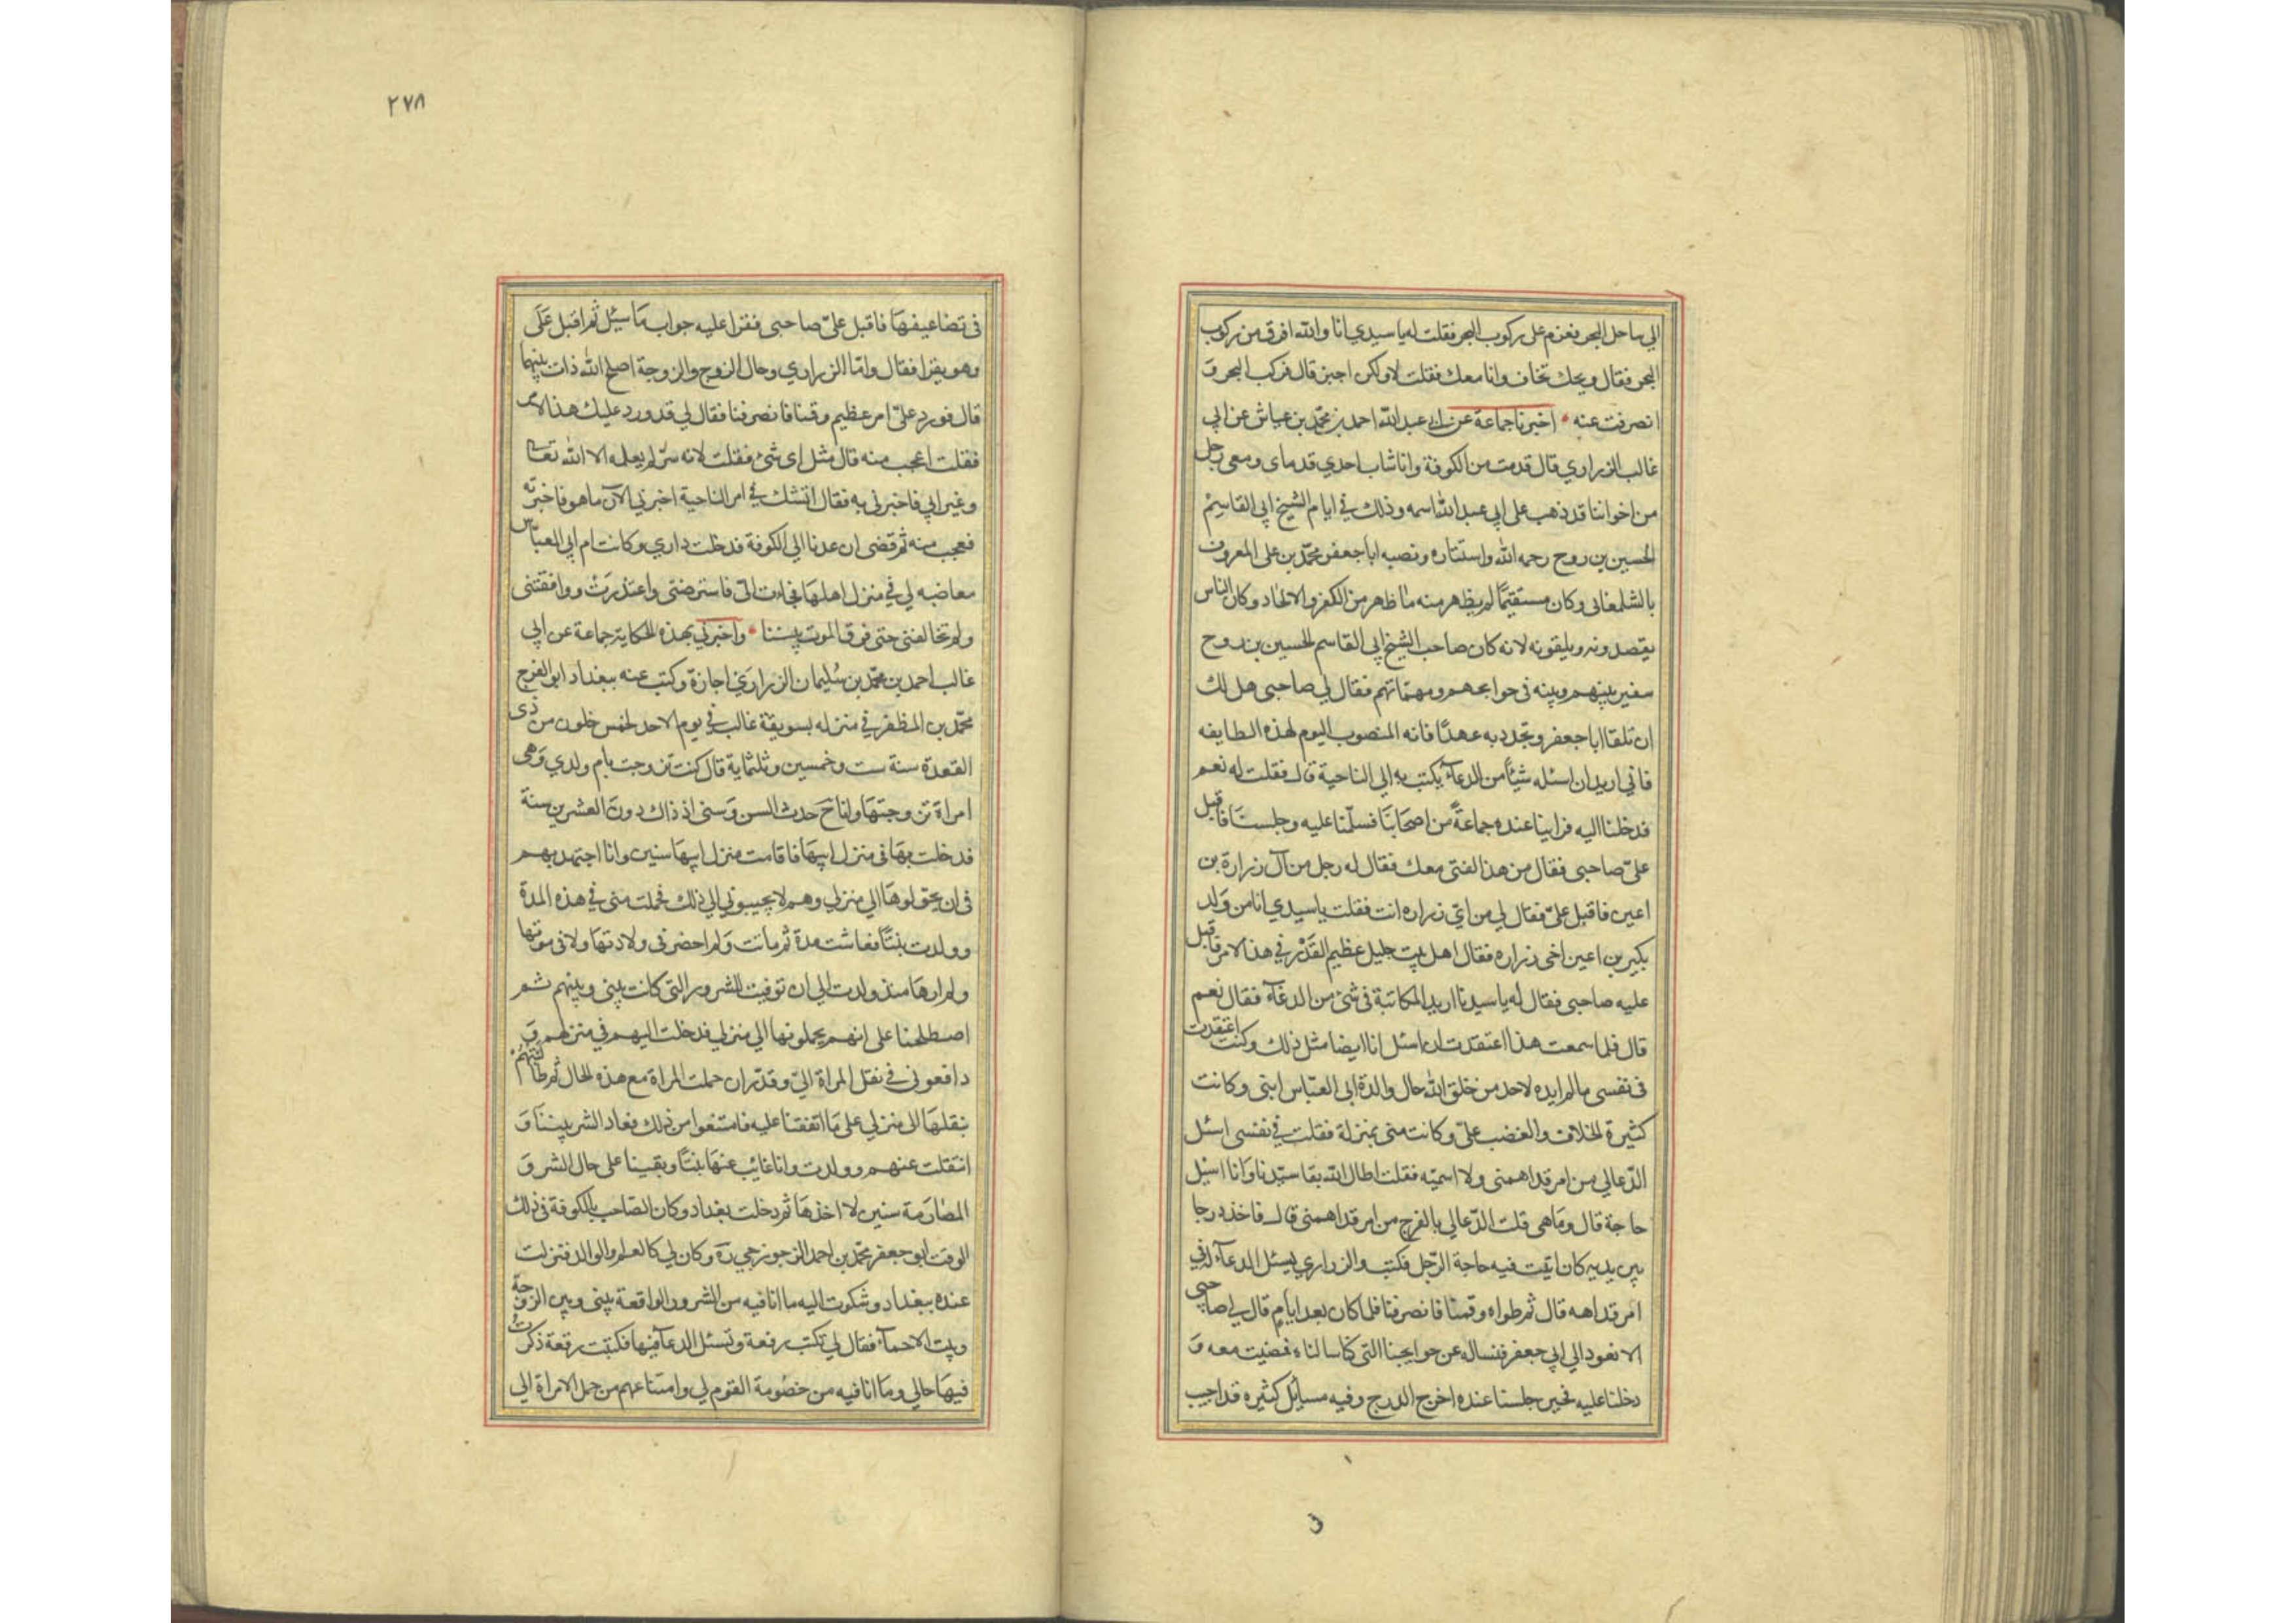 الي ساحل البحر فعزم على ركوب البحر فقلت له ياسيدي انا والله افرق من ركوب
البحر فقال ويحك تخاف وانا معك فقلت لا ولكن اجبن قال فركب البحر وَ
انصرفت عنه • اخبرنا جماعة عن ابي عبدالله احمد بن محمّد بن عياش عن ابي
غالب الزراري قال قدمت من الكوفة وانا شاب احدي قدماى ومعى رجل
من اخواننا قد ذهب على ابي عبدالله اسمه وذلك في ايام الشيخ ابي القاسم
الحسين بن روح رحمه الله واستتاره ونصبه اباجعفر محمّد بن على المعروف
بالشلمغانى وكان مستقيمًا لم يظهر منه ما ظهر من الكفر والالحاد وكان الناس
يقصدونه ويلقونه لانه كان صاحب الشيخ ابي القاسم الحسين بن روح
سفير بينهم وبينه فى حوايجهم ومهمّاتهم فقال لي صاحبى هل لك
ان تلقا اباجعفر وتجدد به عهدًا فانه المنصوب اليوم لهذه الطايفه
فاني اريد ان اسئله شيئًا من الدعآء يكتب به الي الناحية قال فقلت له نعم
فدخلنا اليه فراينا عنده جماعةً من اصحابَنا فسلّمنا عليه وجلسنَا فاقبل
علىّ صاحبى فقال من هذا الفتى معك فقال له رجل من آل زرارة بن
اعين فاقبل علىّ فقال لي من اىّ زراره انت فقلت ياسيدي انا من وَلد
بكير بن اعين اخى زراره فقال اهل بيت جليل عظيم القَدْر في هذا الامر فاقبل
عليه صاحبى فقال له ياسيدنا اريد المكاتبة فى شئ من الدعآء فقال نعم
قال فلما سمعت هذا اعتقدت ان اسئل انا ايضا مثل ذلك وكنت اعتقدت
فى نفسى مالم ابده لاحد من خلق الله حال والدة ابي العبّاس ابنى وكانت
كثيرة الخلاف والغضب علىّ وكانت منى بمنزلة فقلت في نفسى اسئل
الدّعا لي من امر قد اهمنى ولا اسميّه فقلت اطال الله بقا سيّدنا وَانا اسئل
حاجة قال ومَا هى قلت الدّعا لي بالفرج من امر قد اهمنى قال فاخذ درجا
بين يديه كان اثبت فيه حاجة الرّجل فكتب والزراري يسئل الدعآء له في
امر قد اهمه قال ثم طواه وقمنا فانصرفنا فلما كان بعد ايام قال لي صاحبى
الا نعود الي ابي جعفر فنساله عن حوايجنا التى كنا سالناه فمضيت معه وَ
دخلنا عليه فحين جلسنا عنده اخرج الدرج وفيه مسائل كثيره قد اجيب
٢٧٨
فى تضاعيفهَا فاقبل علىّ صاحبى فقرا عليه جواب مَا سئل ثم اقبل عَلَى
وهو يقرا فقال وامّا الزراري وحال الزوج والزوجة اصلح الله ذات بينهما
قال فورد علىّ امر عظيم وقمنا فانصرفنا فقال لي قد ورد عليك هذا الامر
فقلت اعجب منه قال مثل اى شئ فقلت لانه سرّ لم يعلمه الا الله تعالى
وغيرابي فاخبرنى به فقال اتشك في امر الناحية اخبرني الآن ما هو فاخبرته
فعجب منه ثم قضى ان عدنا الي الكوفة فدخلت داري وكانت ام ابي العبّاس
معاضبه لي في منزل اهلهَا فجاءت الىّ فاسترضتى واعتذرَتْ ووافقتنى
ولم تخالفنى حتى فرق الموت بيننا • واخبرني بهذه الحكاية جماعة عن ابي
غالب احمد بن محمّد بن سُليمان الزرارَي اجازة وكتب عنه ببغداد ابو الفرج
محمّد بن المظفر في منزله بسويقة غالب في يوم الاحد لخمس خلون من ذى
القعدة سنة ست وخمسين وثلثماية قال كنت تزوجت بام ولدي وَهى
امراة تزوجتهَا وانا حَ حدث السن وَسنى اذ ذاك دونَ العشرين سنةَ
فدخلت بهَا فى منزل ابيهَا فاقامت منزل ابيهَا سنين وانا اجتهد بهم
فى ان يحوّلوهَا الي منزلي وهم لا يجيبونى الي ذلك فحملت منى في هذه المدة
وولدت بنتًا فعاشت مدة ثم ماتت وَلم احضر فى ولادتهَا ولا فى موتها
ولم ارها منذ ولدت الي ان توفيت للشرور التى كانت بينى وبينهم ثم
اصطلحنا على انهم يحملونها الي منزلي فدخلت اليهم في منزلهم وَ
دافعونى في نقل المراة الىّ وقدّر ان حملت المراة مع هذه الحال ثم طالبتهُم
بنقلهَا الى منزلي على مَا اتفقنا عليه فامتنعوا من ذلك فعاد الشر بيننَا وَ
انتقلت عنهم وولدت وانا غائب عنهَا بنتًا وبقينا على حال الشر وَ
المصَارَمة سنين لا اخذهَا ثم دخلت بغداد وكان الصاحب بالكوفة فى ذلك
الوقت ابو جعفر محمّد بن احمد الزجوزجي رَه وكان لي كالعم او الوالد فنزلت
عنده ببغداد وشكوت اليه ما انا فيه من الشرور الواقعة بينى وبين الزوجة
وبيت الاحمآء فقال لي تكتب رقعة وتسئل الدعآ فيها فكتبت رقعة ذكرتُ
فيهَا حالي ومَا انا فيه من خصُومة القوم لي وامتناعهم من حمل الامراة الي